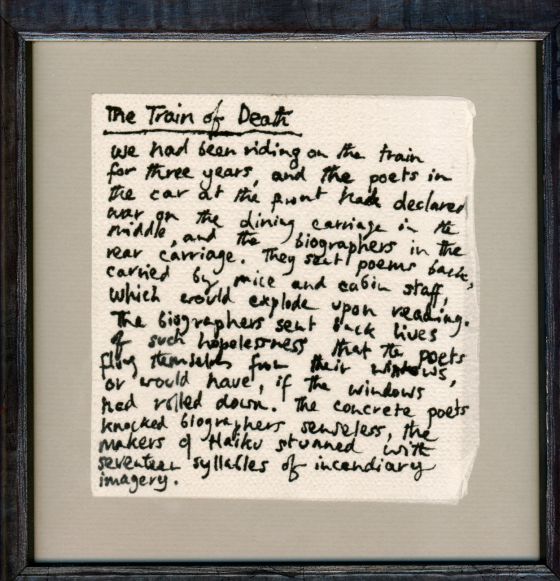 The Train of Death
we had been riding on the train
for three years, and the poets in
the car at the front had declared
war on the dining carriage in the
middle, and the biographers in the
rear carriage. They sent poems back,
carried by mice and cabin staff,
which would explode upon reading.
The biographers sent back lives
of such hopelessness that the poets
flung themselves from their windows,
or would have, if the windows
had rolled down. The concrete poets
knocked biographers senseless, the
makers of Haiku stunned with
seventeen syllables of incendiary
imagery.